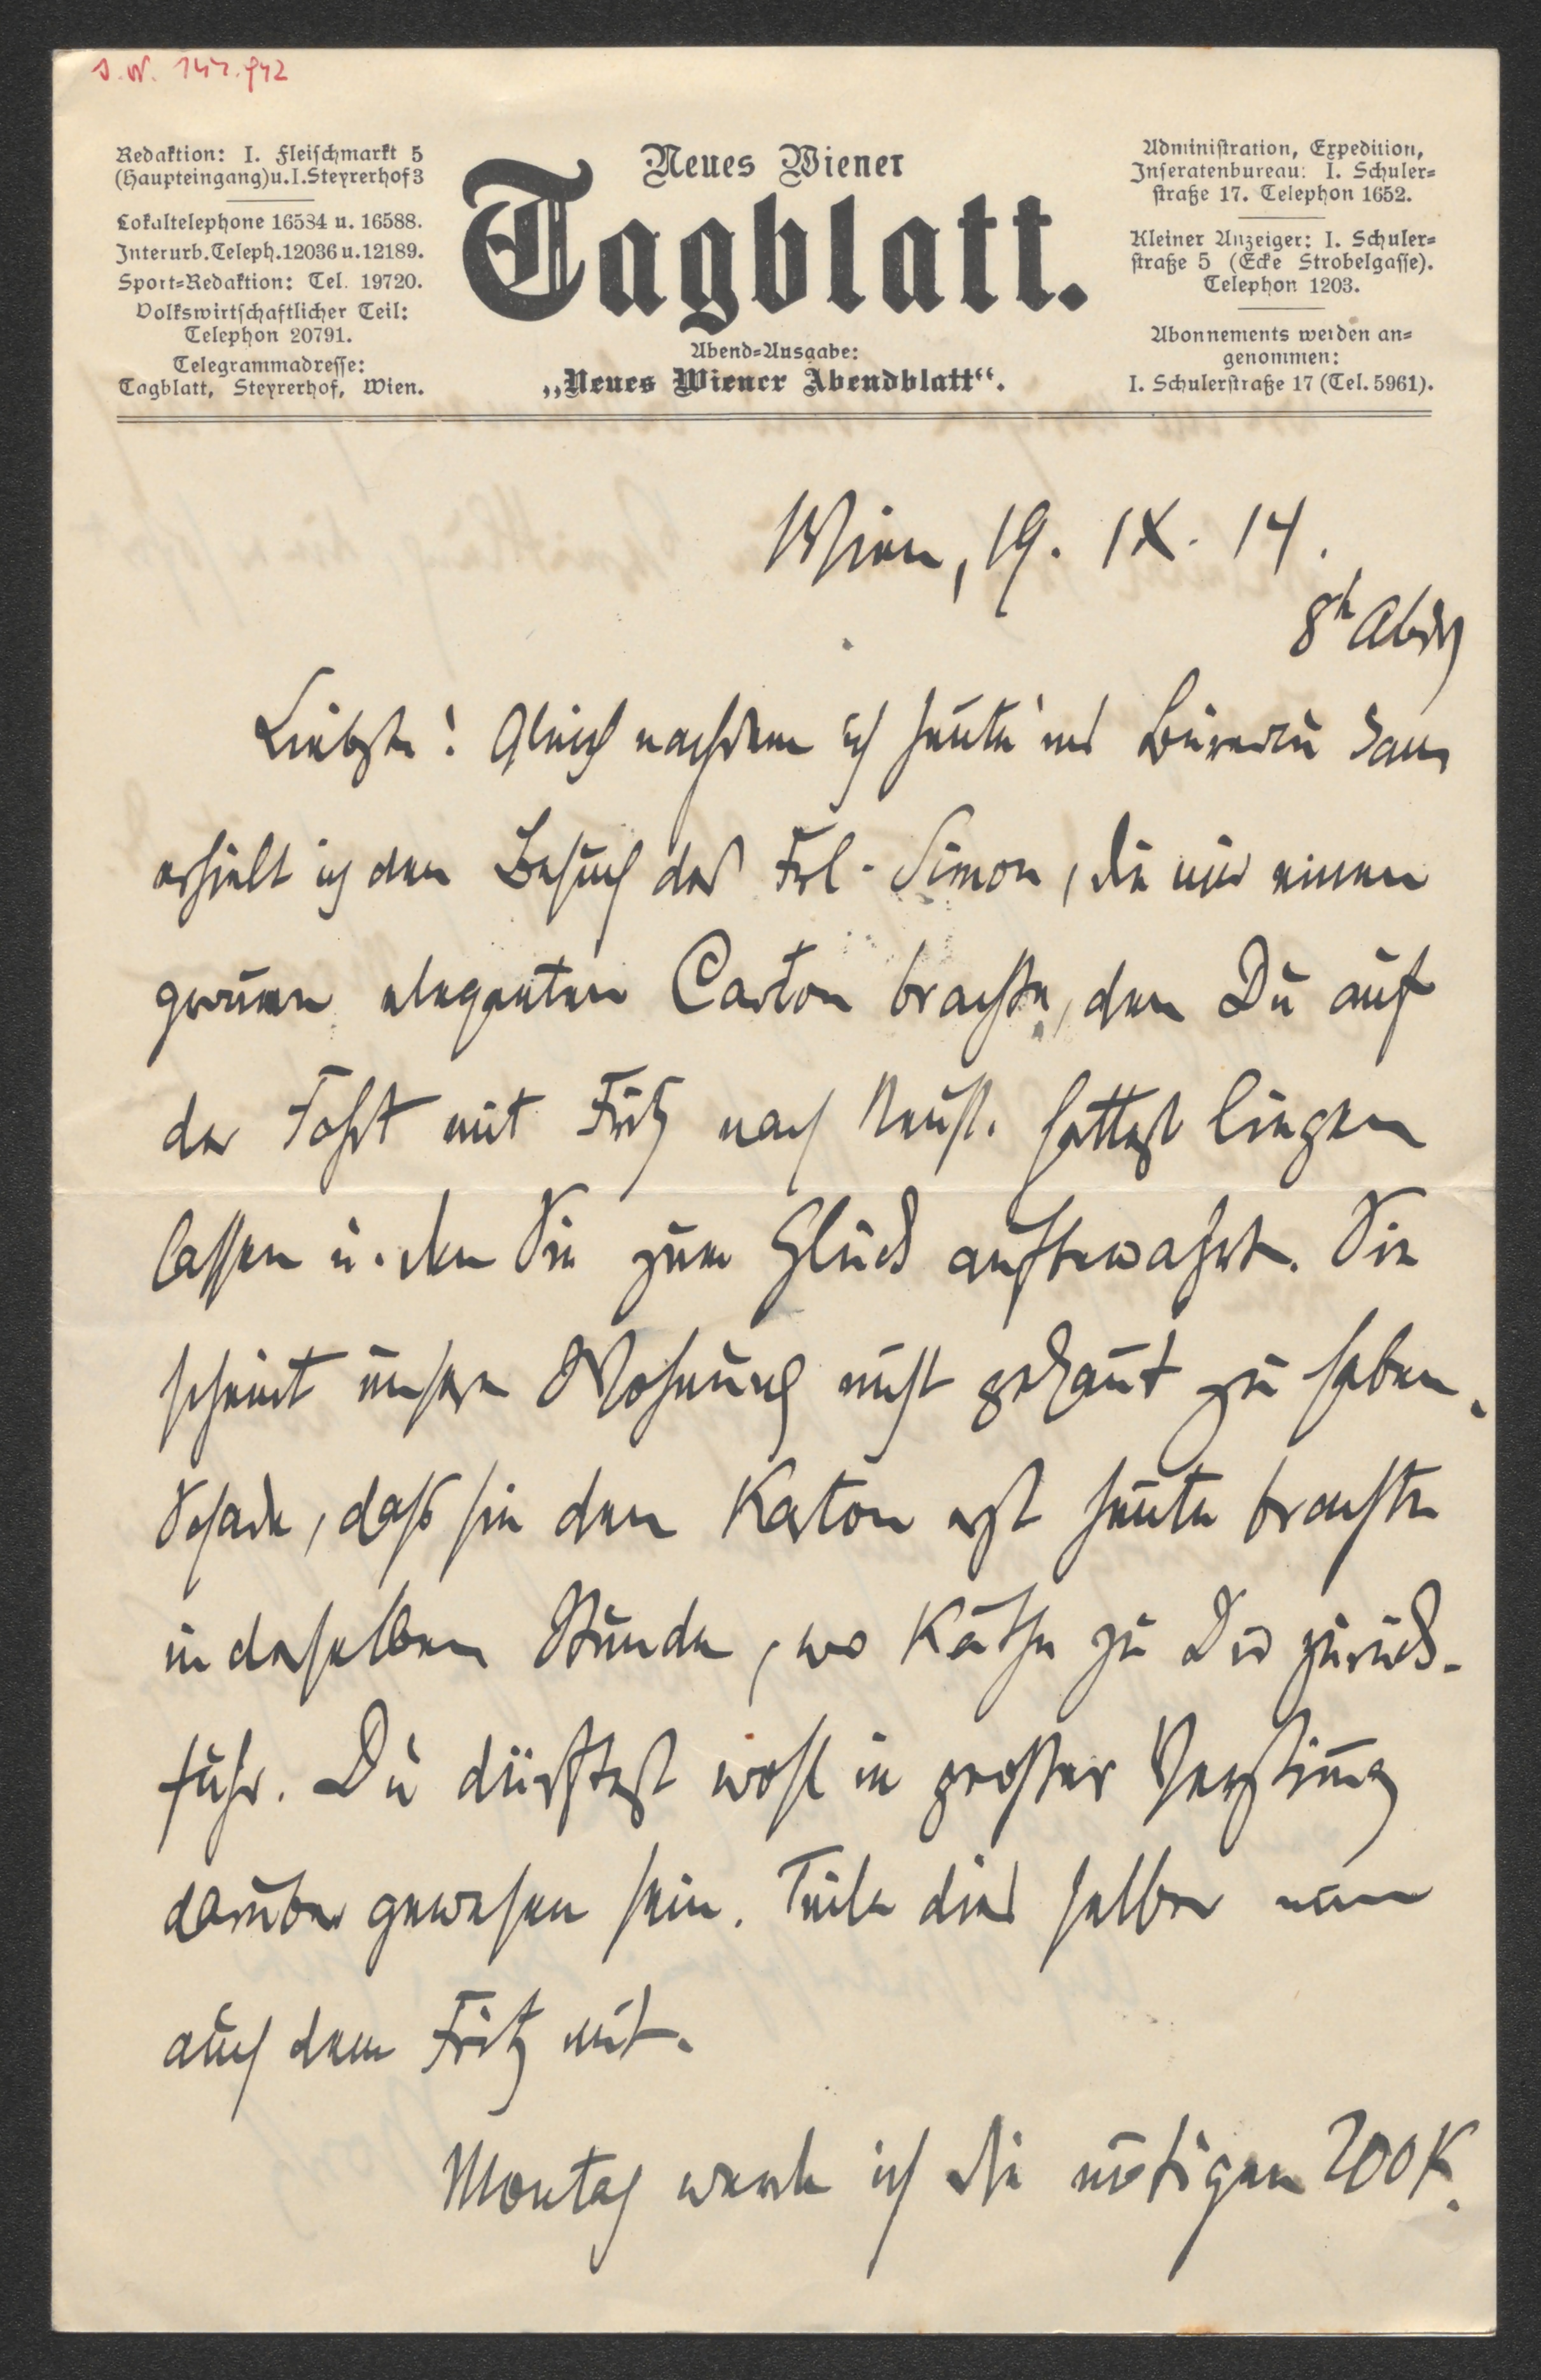 J. N. 147.942
Redaktion: I. Fleischmarkt 5
(Haupteingang) u. I. Steyrerhof 3
Lokaltelephone 16584 u. 16588.
Interurb. Teleph. 12036 u. 12189.
Sport=Redaktion: Tel. 19720.
Volkswirtschaftlicher Teil:
Telephon 20791.
Telegrammadresse:
Tagblatt, Steyrerhof, Wien.
Neues Wiener
Tagblatt.
Abend=Ausgabe:
„Neues Wiener Abendblatt“.
Administration, Expedition,
Inseratenbureau: I. Schuler=
straße 17. Telephon 1652.
Kleiner Anzeiger: I. Schuler=
straße 5 (Ecke Strobelgasse).
Telephon 1203.
Abonnements werden an=
genommen:
I. Schulerstraße 17 (Tel. 5961).
Wien, 19. IX. 14.
8h Abds
Liebste! Gleich nachdem ich heute ins Bureau kam
erhielt ich den Besuch des Frl. Simon, die mir einen
grauen eleganten Carton brachte, den Du auf
der Fahrt mit Fritz nach Neust. hattest liegen
lassen u. den Sie zum Glück aufbewahrt. Sie
scheint unsere Wohnung nicht gekannt zu haben.
Schade, daß sie den Karton erst heute brachte
in derselben Stunde, wo Käthe zu Dir zurück-
fuhr. Du dürftest wohl in großer Verstimmung
darüber gewesen sein. Teile dies selber nun
auch dem Fritz mit.
Montag werde ich die nötigen 200 K.